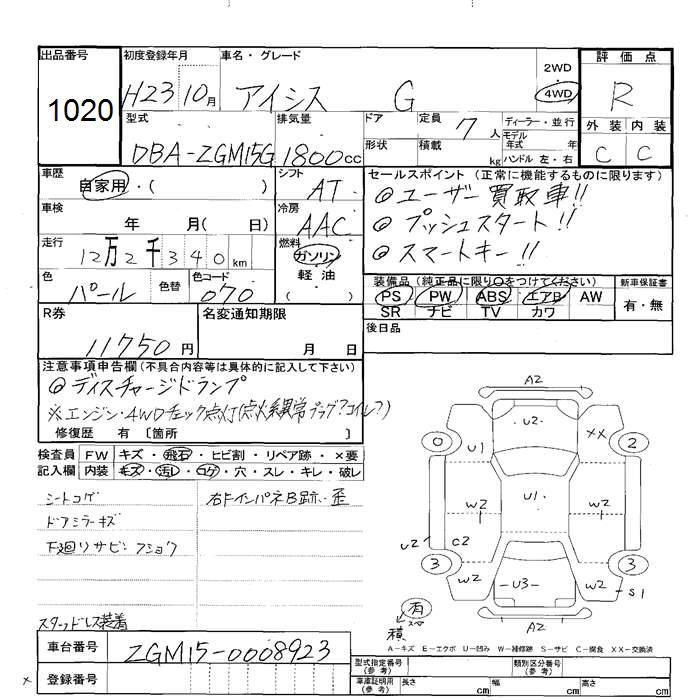 出品番号
1020
初度登録年月
H23 10月
車名・グレード
アイシス G
2WD
4WD
評価点
R
外装 内装
C C
型式
DBA-ZGM15G
排気量
1800cc
ドア
形状
定員 7人
積載 kg
ディーラー・並行
モデル
年式 年
ハンドル 左・右
車歴
自家用・( )
シフト
AT
セールスポイント (正常に機能するものに限ります)
◎ユーザー買取車!!
◎プッシュスタート!!
◎スマートキー!!
車検
年 月( 日)
冷房
AAC
走行
12万2千340km
燃料
ガソリン
軽油
( )
色
パール
色替
色コード
070
装備品 (純正品に限り○をつけてください)
PS PW ABS エアB AW
SR ナビ TV カワ
新車保証書
有・無
R券
11750円
名変通知期限
月 日
後日品
注意事項申告欄(不具合内容等は具体的に記入して下さい)
◎ディスチャージドランプ
※エンジン・4WDチェック点灯(点火系異常プラグ?コイル?)
修復歴 有 〔箇所 〕
検査員 FW キズ・飛石・ヒビ割・リペア跡・×要
記入欄 内装 キズ・汚れ・コゲ・穴・スレ・キレ・破レ
シートコゲ
右FインパネB跡・歪
ドアミラーキズ
下廻りサビ・フショク
スタッドレス装着
A2
U2
U1
XX
0
2
W2
U1
W2
U2
C2
3
3
W2
U3
W2
S1
A2
有
スペア
積
A-キズ E-エクボ U-凹み W-補修跡 S-サビ C-腐食 XX-交換済
車台番号
ZGM15-0008923
登録番号
型式指定番号
(参考)
類別区分番号
(参考)
車庫証明用
(参考)
長さ cm
幅 cm
高さ cm